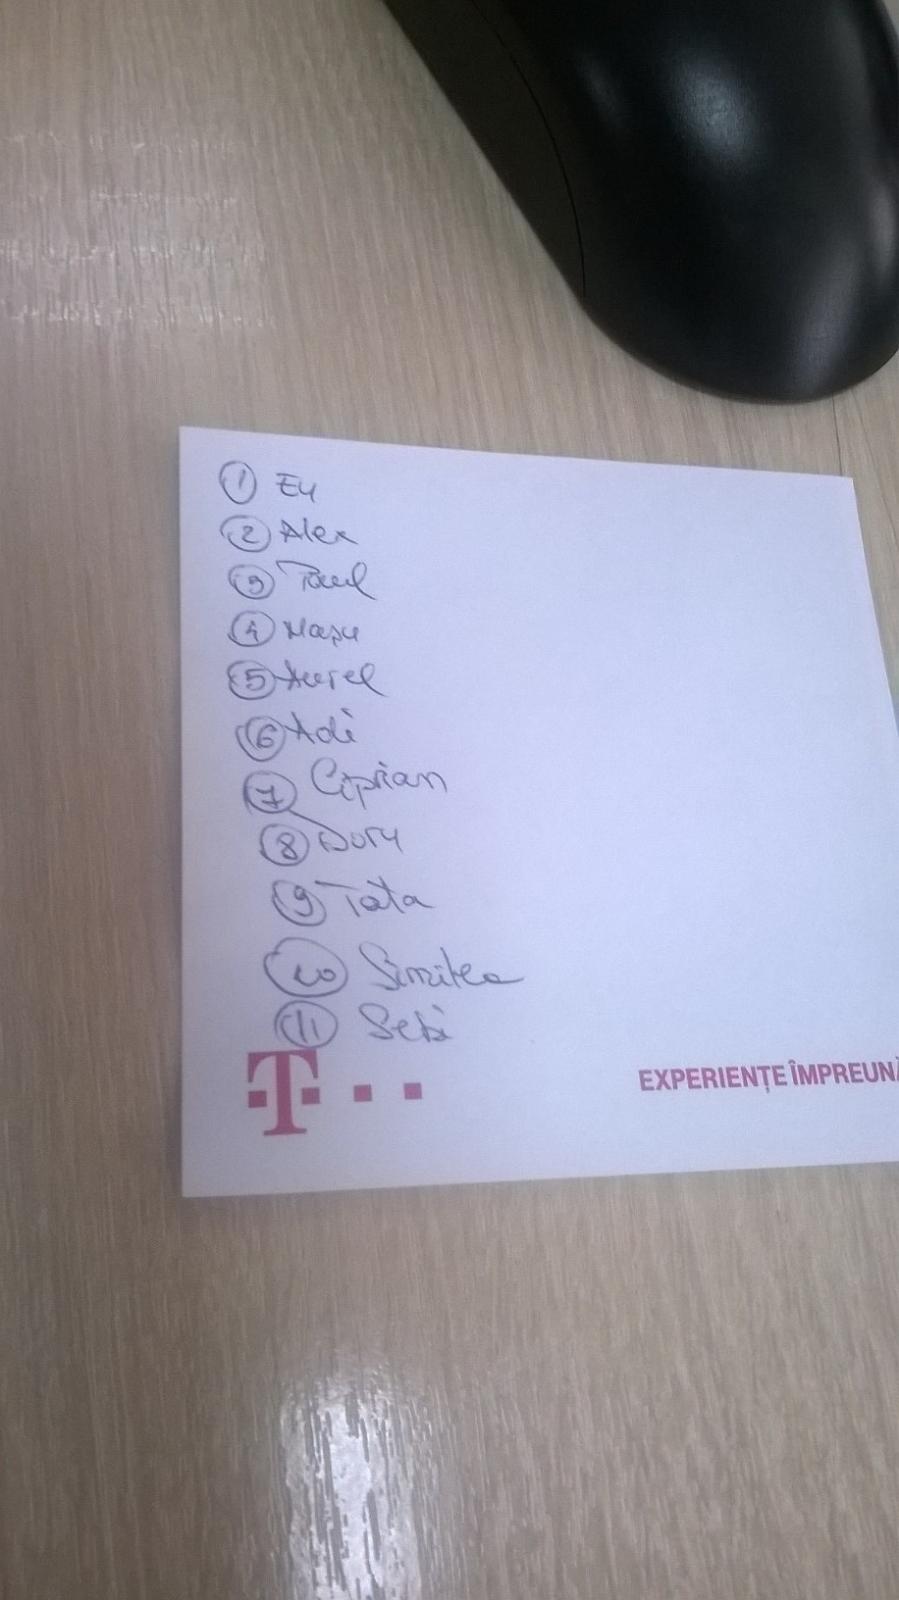 1 Eu
2 Alex
3 Paul
4 Nașu
5 Aurel
6 Adi
7 Ciprian
8 Doru
9 Tata
10 Simitea
11 Sebi
T
EXPERIENȚE ÎMPREUNĂ